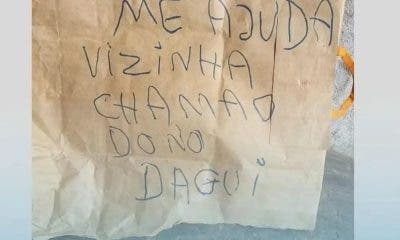 ME AJUDA
VIZINHA
CHAMAO
DONO
DAQUI